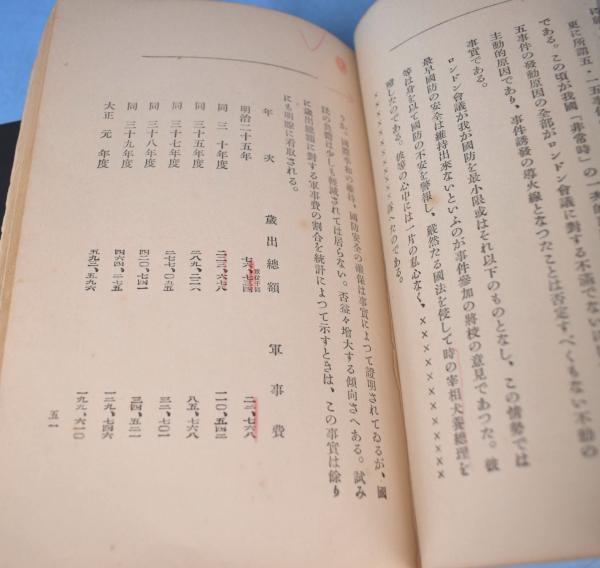 更に所謂五・一五事件
である。この頃が我國「非常時」の一大
五事件の發動原因の全部がロンドン會議に對する不滿でないに
主動的原因であり、事件誘發の導火線となつたことは否定すべくもない不動の
事實である。
ロンドン會議が我が國防を最小限或はそれ以下のものとなし、この情勢では
最早國防の安全は維持出來ないといふのが事件參加の將校の意見であつた。彼
等は身を以て國防の不安を警報し、嚴然たる國法を侵して時の宰相犬養總理を
した
のである。彼等の心中には一片の私心なく、××××××××
××××××××××××
へたのである。
うか。國際平和の維持、國防安全の確保は事實によつて證明されてゐるが、國
民の負擔は少しも輕減されては居らない。否益々增大する傾向さへある。試み
に歲出總額に對する軍事費の割合を統計によつて示すときは、この事實は餘り
にも明瞭に看取される。
年次 歲出總額 軍事費
單位千圓
明治二十五年 七六、七三四 二三、七六八
同 三十年度 二二三、六七八 一一〇、五四二
同 三十五年度 二八九、二二六 八五、七六八
同 三十七年度 二七七、〇五五 三二、七〇一
同 三十八年度 四二〇、七四一 三四、五二一
同 三十九年度 四六四、二七五 一二九、七四六
大正元年度 五九三、五九六 一九九、六一〇
五一